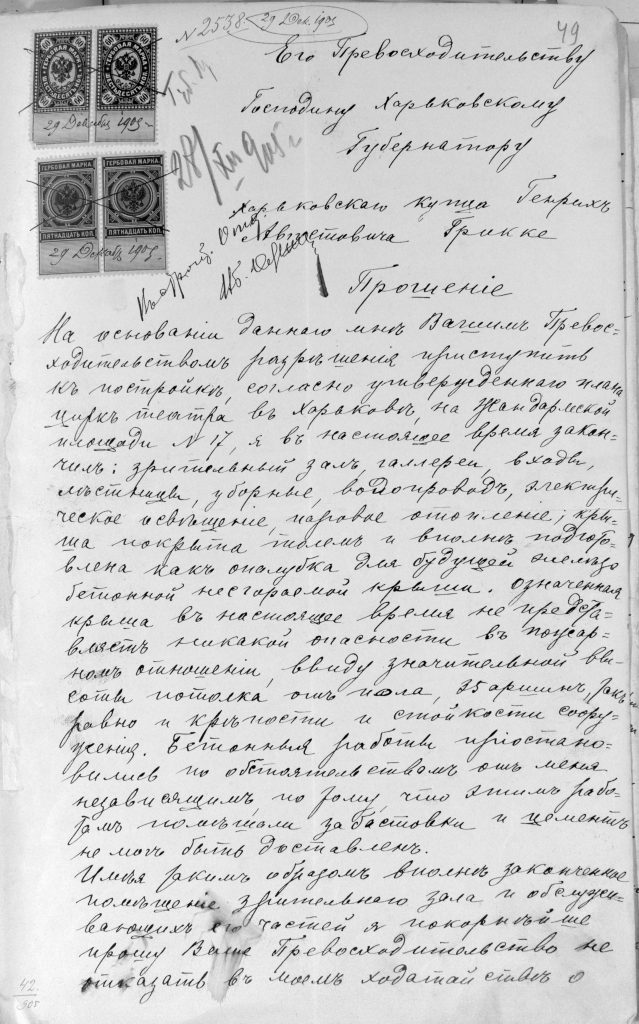 N 2538. 29 Дек. 1905
49
60 ГЕРБОВАЯ МАРКА 60
60 60
29 Декабр 1905
ГЕРБОВАЯ МАРКА ГЕРБОВАЯ МАРКА
ПЯТНАДЦАТЬ КОП. ПЯТНАДЦАТЬ КОП.
29 Декабр 1905
28/XII 905 г
Его Превосходительству
Господину Харьковскому
Губернатору
Харьковскаго купца Генрихъ
Августовича Грикке
Прошеніе
На основаніи даннаго мнѣ Вашимъ Превос-
ходительствомъ разрѣшенія приступить
къ постройкѣ, согласно утвержденнаго плана
циркъ театра въ Харьковѣ, на Жандармской
площади N 17, я въ настоящее время закон-
чилъ: зрительный залъ, галлереи, входы,
лѣстницы, уборные, водопроводъ, электри-
ческое освѣщеніе, паровое отопленіе; кры-
ша покрыта толемъ и вполнѣ подгото-
влена какъ опалубка для будущей желѣзо
бетонной несгораемой крыши. Означенная
крыша въ настоящее время не предста-
вляетъ никакой опасности въ пожар-
номъ отношеніи, ввиду значительной вы-
соты потолка отъ пола, 35 аршинъ, такъ
равно и крѣпости и стойкости соору-
женія. Бетонныя работы пріостано-
вились по обстоятельствомъ отъ меня
независящимъ, по тому, что этимъ рабо-
тамъ помѣшали забастовки и цементъ
не могъ быть доставленъ.
Имѣя такимъ образомъ вполнѣ законченное
помѣщеніе зрительнаго зала и обслужи-
вающихъ его частей я покорнѣйше
прошу Ваше Превосходительство не
отказать въ моемъ ходатайствѣ о
42
905